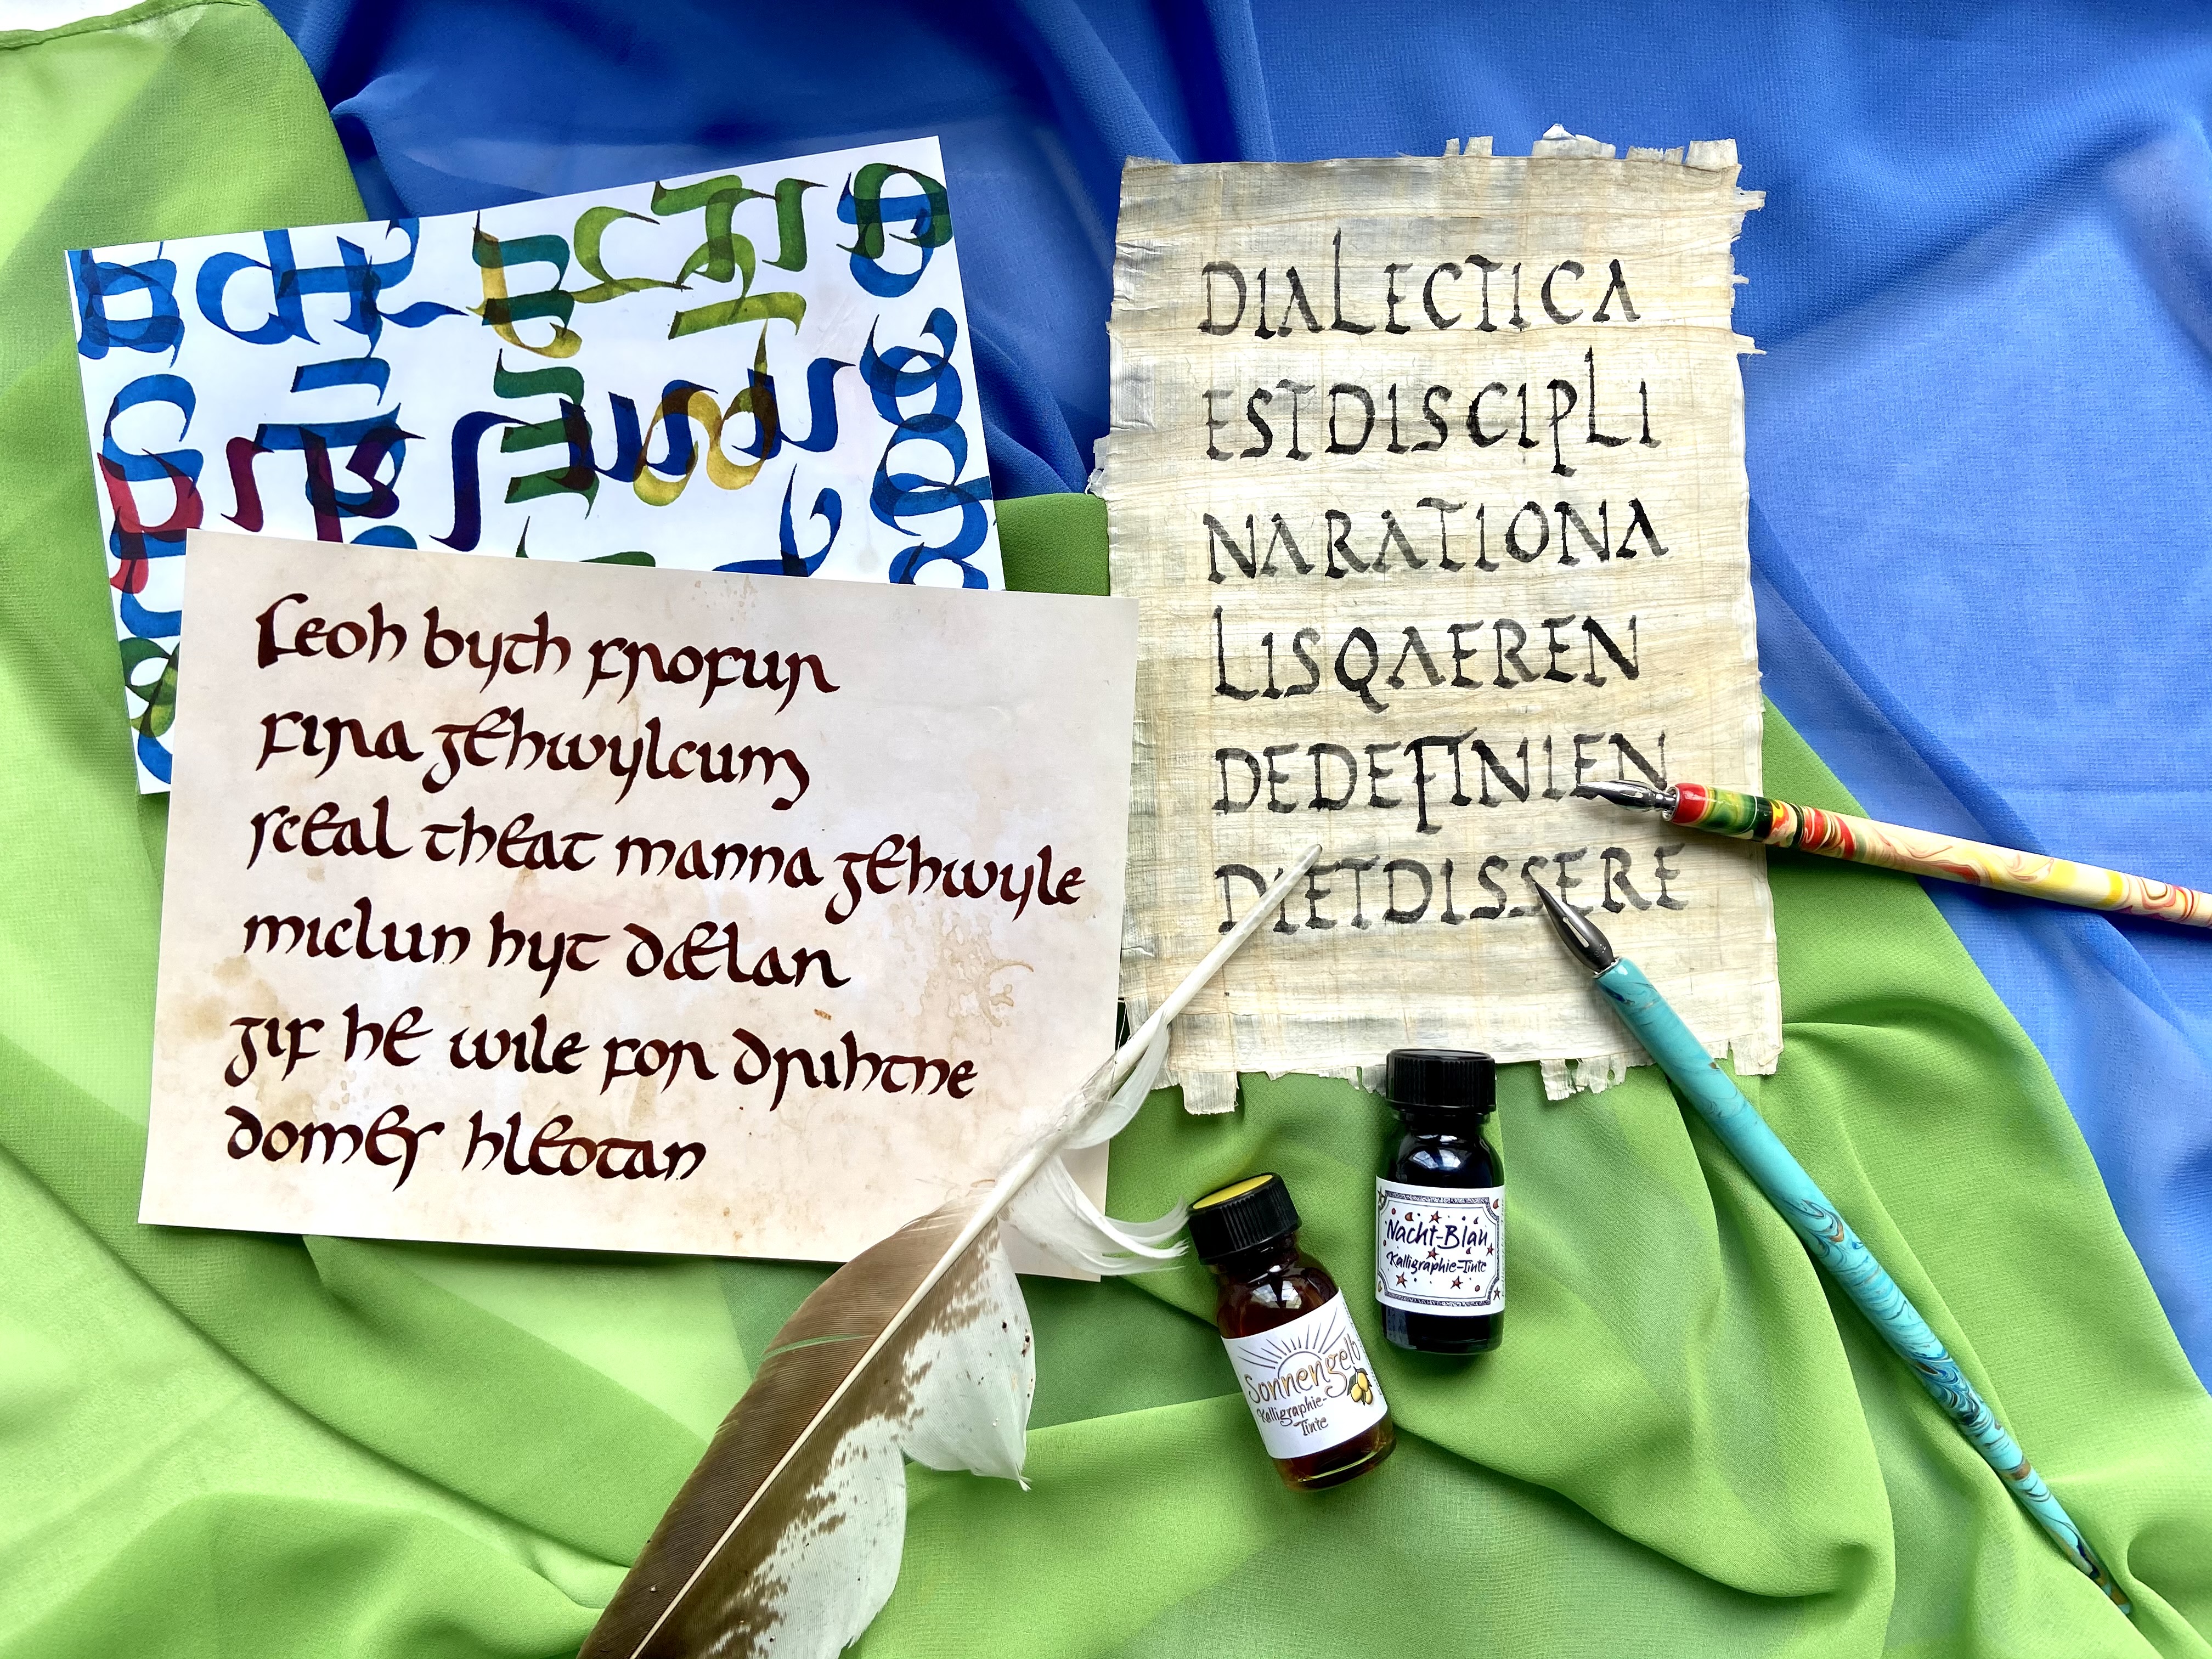 Feoh byth frofur
fira gehwylcum
sceal theat manna gehwyle
miclun hyt dælan
gif he wile for drihtne
domes hleotan
DIALECTICA
ESTDISCIPLI
NARATIONA
LISQAEREN
DEDEFINIEN
DIETDISSERE
Nacht-Blau
Kalligraphie-Tinte
Sonnengelb
Kalligraphie-
Tinte